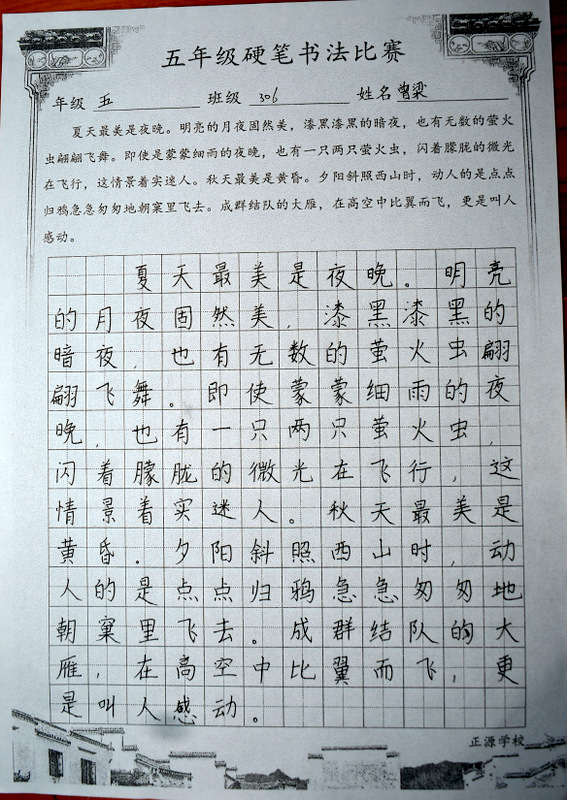 五年级硬笔书法比赛
年级 五 班级 306 姓名 曾梁
夏天最美是夜晚。明亮的月夜固然美，漆黑漆黑的暗夜，也有无数的萤火
虫翩翩飞舞。即使是蒙蒙细雨的夜晚，也有一只两只萤火虫，闪着朦胧的微光
在飞行，这情景着实迷人。秋天最美是黄昏。夕阳斜照西山时，动人的是点点
归鸦急急匆匆地朝窠里飞去。成群结队的大雁，在高空中比翼而飞，更是叫人
感动。
夏天最美是夜晚。明亮
的月夜固然美，漆黑漆黑的
暗夜，也有无数的萤火虫翩
翩飞舞。即使蒙蒙细雨的夜
晚，也有一只两只萤火虫，
闪着朦胧的微光在飞行，这
情景着实迷人。秋天最美是
黄昏.夕阳斜照西山时，动
人的是点点归鸦急急匆匆地
朝窠里飞去。成群结队的大
雁，在高空中比翼而飞，更
是叫人感动。
正源学校